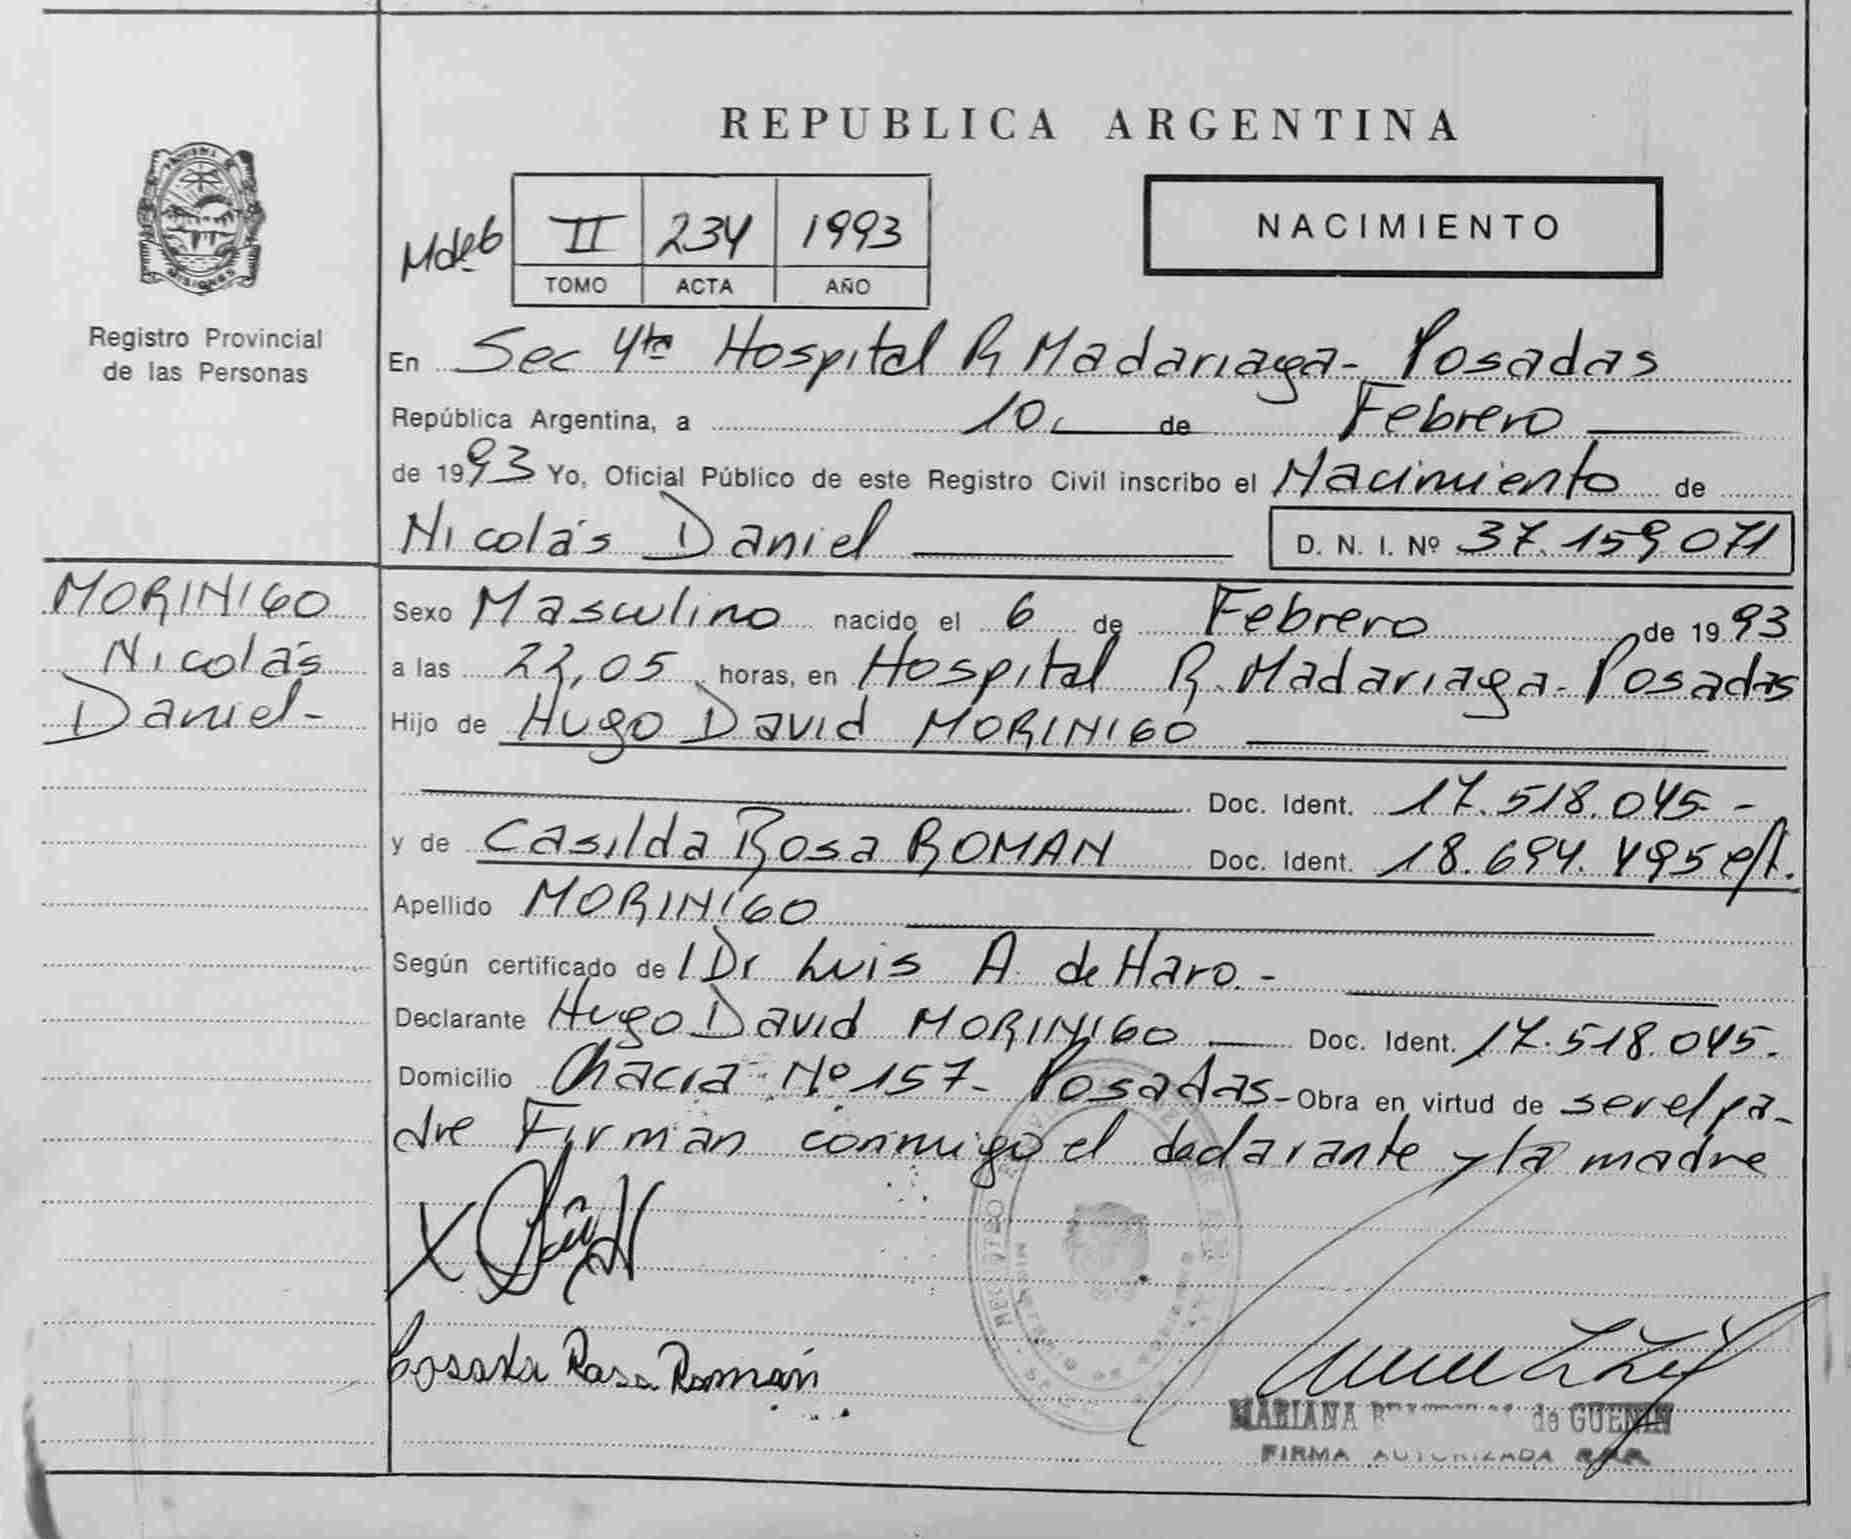 REPUBLICA ARGENTINA
NACIMIENTO
II 234 1993
TOMO ACTA AÑO
MISIONES
Registro Provincial
de las Personas
En Sec 4ta Hospital R Madariaga - Posadas
República Argentina, a 10 de Febrero
de 1993 Yo, Oficial Público de este Registro Civil inscribo el Nacimiento de
Nicolás Daniel D. N. I. Nº 37.159.071
MORINIGO
Nicolás
Daniel-
Sexo Masculino nacido el 6 de Febrero de 1993
a las 22,05 horas, en Hospital R. Madariaga - Posadas
Hijo de Hugo David MORINIGO
Doc. Ident. 17.518.045 -
y de Casilda Rosa ROMAN Doc. Ident. 18.694.495
Apellido MORINIGO
Según certificado de l Dr Luis A. de Haro.-
Declarante Hugo David MORINIGO Doc. Ident. 17.518.045.
Domicilio Chacra Nº 157- Posadas- Obra en virtud de ser el pa-
dre Firman conmigo el declarante y la madre
X
Rosa Román
MARIANA de GUENIN
FIRMA AUTORIZADA